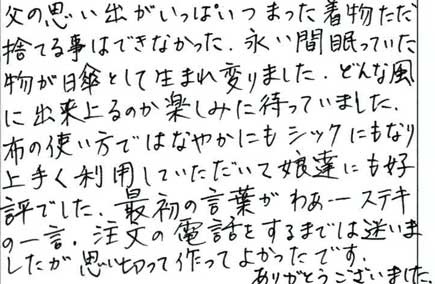 父の思い出がいっぱいつまった着物ただ
捨てる事はできなかった. 永い間眠っていた
物が日傘として生まれ変りました. どんな風
に出来上るのか楽しみに待っていました.
布の使い方ではなやかにもシックにもなり
上手く利用していただいて娘達にも好
評でした. 最初の言葉がわぁーステキ
の一言. 注文の電話をするまでは迷いま
したが思い切って作ってよかったです.
ありがとうございました.